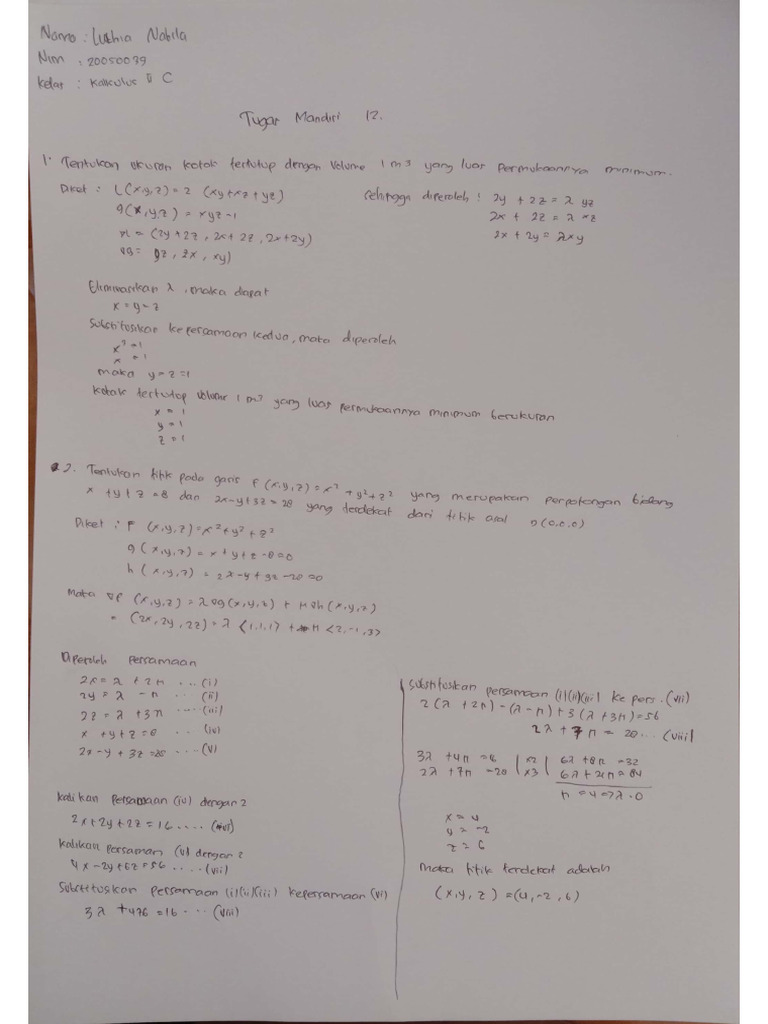 Nama : Luthia Nabila
Nim : 20050039
Kelas : Kalkulus II C
Tugas Mandiri 12.
1. Tentukan ukuran kotak tertutup dengan Volume 1 m3 yang luas permukaannya minimum.
Diket : L(x,y,z) = 2 (xy+xz+yz)
g(x,y,z) = xyz-1
= (2y+2z, 2x+2z, 2x+2y)
∇g = yz, zx, xy)
Sehingga diperoleh : 2y + 2z = λ yz
2x + 2z = λ xz
2x + 2y = λxy
Eliminasikan λ, maka dapat
x = y = z
Substitusikan ke persamaan kedua, maka diperoleh
x³ = 1
x = 1
maka y = z = 1
Kotak tertutup volume 1 m³ yang luas permukaannya minimum berukuran
x = 1
y = 1
z = 1
2. Tentukan titik pada garis F (x,y,z) = x² + y² + z² yang merupakan perpotongan bidang
x + y + z = 8 dan 2x-y+3z = 28 yang terdekat dari titik asal 0(0,0,0)
Diket : F (x,y,z) = x² + y² + z²
g (x,y,z) = x+y+z -8=0
h (x,y,z) = 2x-y+3z-28=0
Maka ∇F (x,y,z) = λ ∇g(x,y,z) + M ∇h (x,y,z)
= (2x, 2y, 2z) = λ <1,1,1> + M <2,-1,3>
Diperoleh persamaan
2x = λ + 2M ... (i)
2y = λ - M .. (ii)
2z = λ + 3M ..... (iii)
x + y + z = 8 ... (iv)
2x - y + 3z = 28 ... (v)
Kalikan Persamaan (iv) dengan 2
2x+2y+2z = 16 .... (vi)
Kalikan Persaman (v) dengan 2
4x-2y+6z = 56 ..... (vii)
Substitusikan Persamaan (i)(ii)(iii) kepersamaan (vi)
3λ + 4M = 16 ... (viii)
Substitusikan persamaan (i)(ii)(iii) ke pers. (vii)
2(λ + 2M) - (λ - M) + 3(λ + 3M) = 56
2λ + 7M = 28 ... (viii)
3λ + 4M = 16 | x2 | 6λ + 8M = 32
2λ + 7M = 28 | x3 | 6λ + 21M = 84
M = 4 => λ = 0
x = 4
y = -2
z = 6
Maka titik terdekat adalah
(x,y,z) = (4, -2, 6)